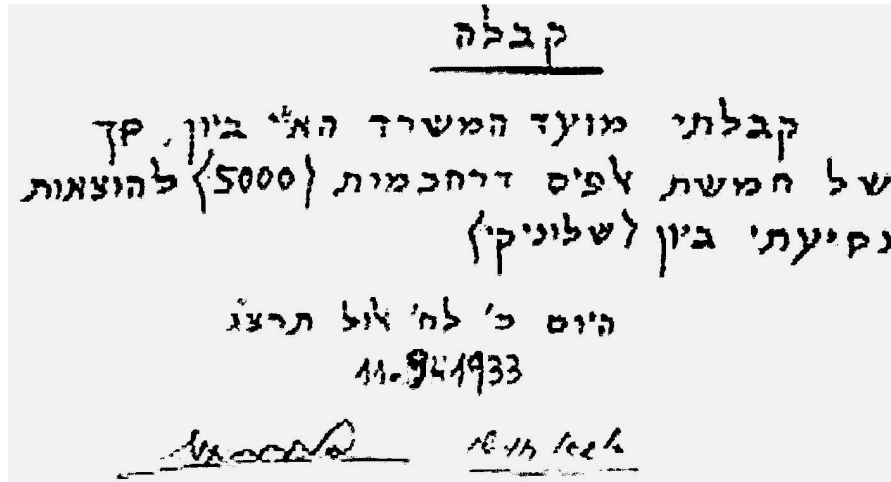 קבלה
קבלתי מועד המשרד הא"י ביון, סך
של חמשת אלפים דרחכמית (5000) להוצאות
נסיעתי ביון (שלוניקי)
היום כ' לח' אלול תרצ"ג
11.9.1933